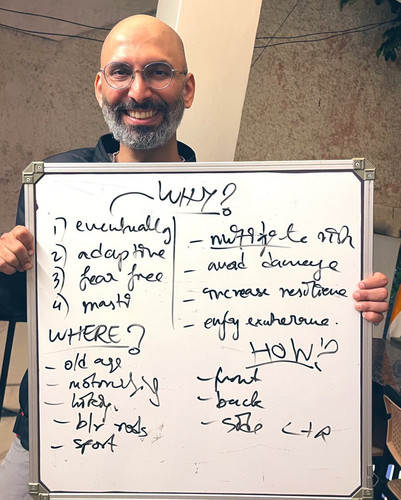 WHY?
1) eventually
2) adaptive
3) fear free
4) masti
- mitigate risk
- avoid damage
- increase resilience
- enjoy
WHERE?
- old age
- motorcycling
- hiking
- blr roads
- sport
HOW?
- front
- back
- side L+R